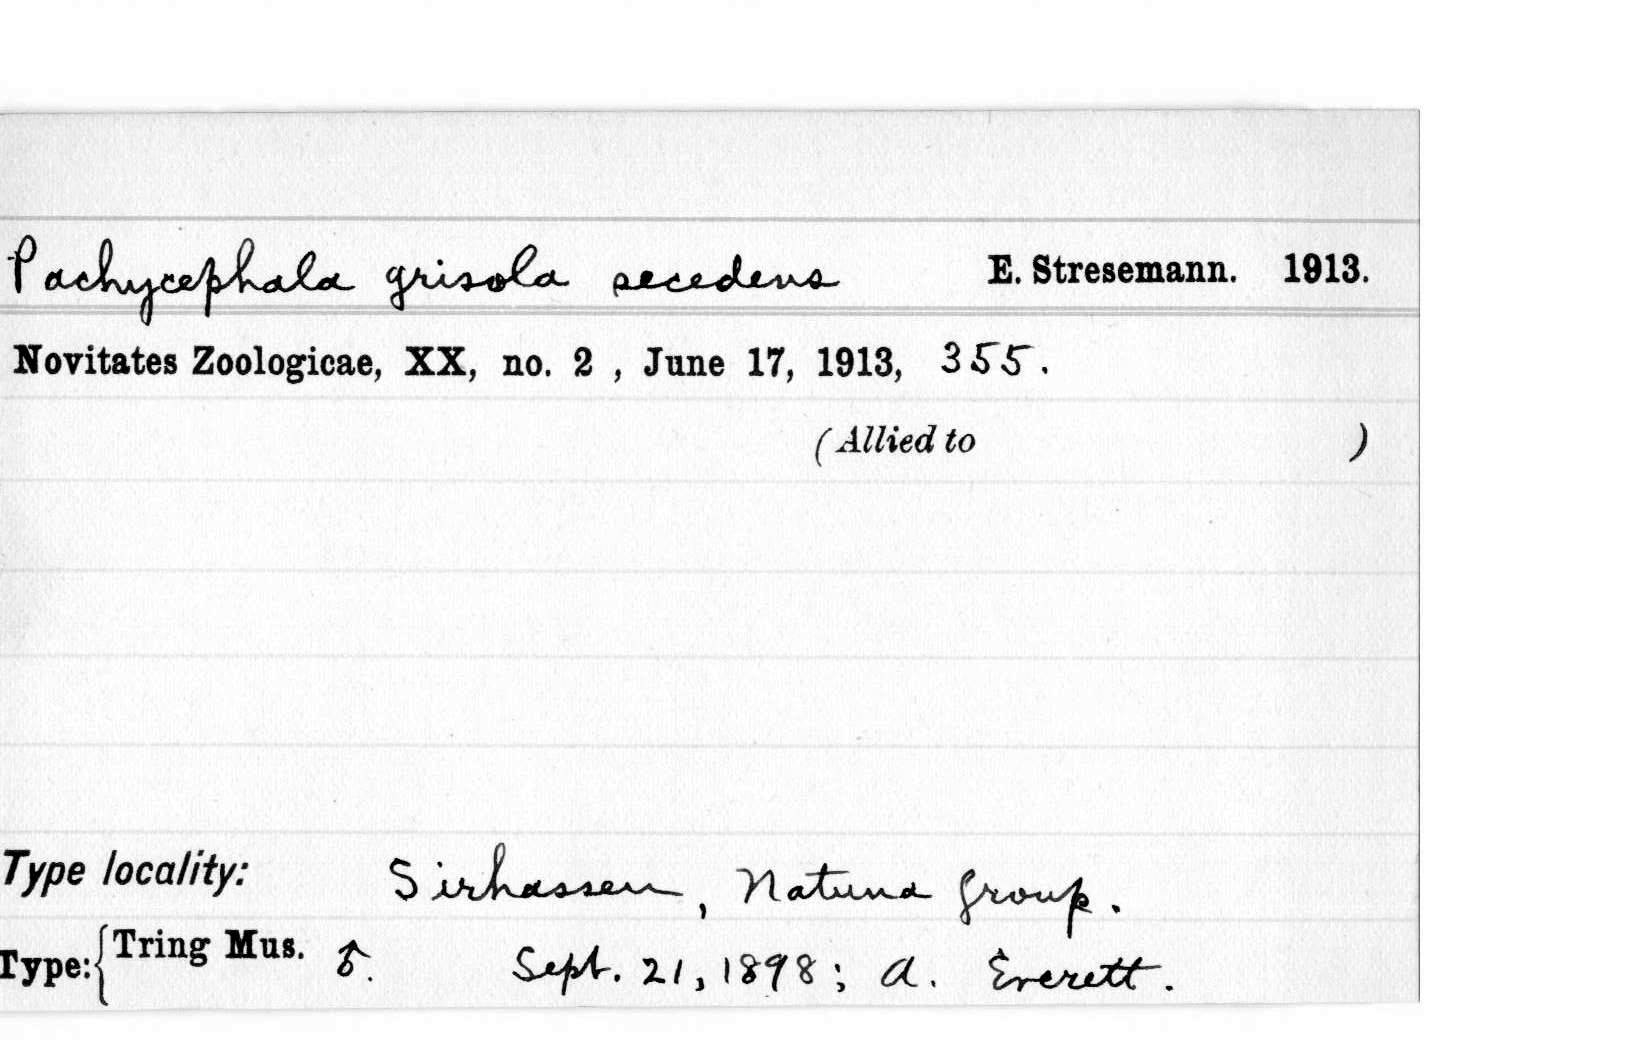 Pachycephala grisola secedens E. Stresemann. 1913.
Novitates Zoologicae, XX, no. 2 , June 17, 1913, 355.
(Allied to )
Type locality: Sirhassen, Natuna Group.
Type: { Tring Mus. ♂. Sept. 21, 1898; A. Everett.